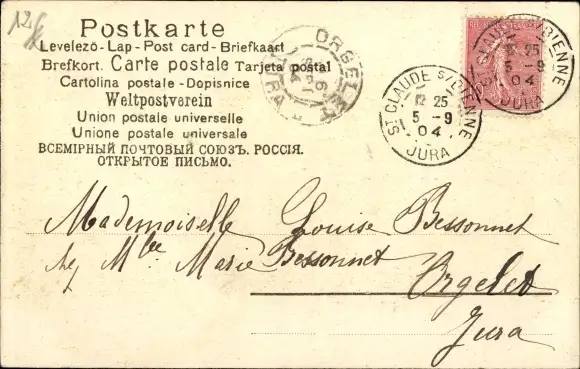 12 fc
Postkarte
Levelező-Lap - Post card - Briefkaart
Brefkort. Carte postale Tarjeta postal
Cartolina postale - Dopisnice
Weltpostverein
Union postale universelle
Unione postale universale
ВСЕМІРНЫЙ ПОЧТОВЫЙ СОЮЗЪ. РОССІЯ.
ОТКРЫТОЕ ПИСЬМО.
ORGELET
JURA
ST CLAUDE S/BIENNE
12 25
5 - 9
04
JURA
ST CLAUDE S/BIENNE
12 25
5 - 9
04
JURA
Mademoiselle Louise Bessonnet
chez Mlle Marie Bessonnet
Orgelet
Jura